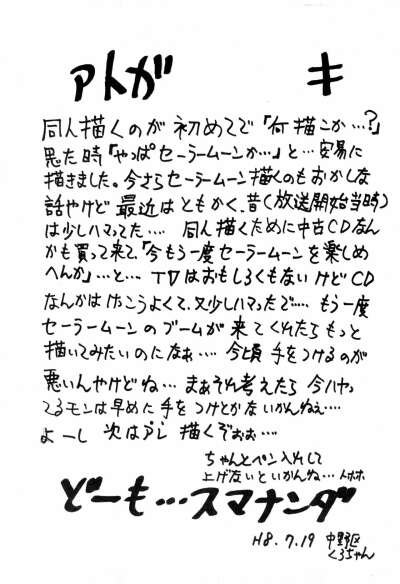 アトガキ
同人描くのが初めてで「何描こか…?」
思た時「やっぱセーラームーンか…」と…安易に
描きました。今さらセーラームーン描くのもおかしな
話やけど最近はともかく、昔(放送開始当時)
は少しハマってた…. 同人描くために中古CDなん
かも買って来て、「今もう一度セーラームーンを楽しめ
へんか」…と…TVはおもしろくもないけどCD
なんかはけっこうよくて、又少しハマったで…. もう一度
セーラームーンのブームが来てくれたらもっと
描いてみたいのになぁ…. 今頃手をつけるのが
悪いんやけどね…まぁそれ考えたら今ハヤっ
てるモンは早めに手をつけとかないかんねぇ….
よーし次は 描くぞぉぉ….
ちゃんとペン入れして
上げないといかんね…トホホ
どーも…スマナンダ
H8.7.19 中野区
くろちゃん